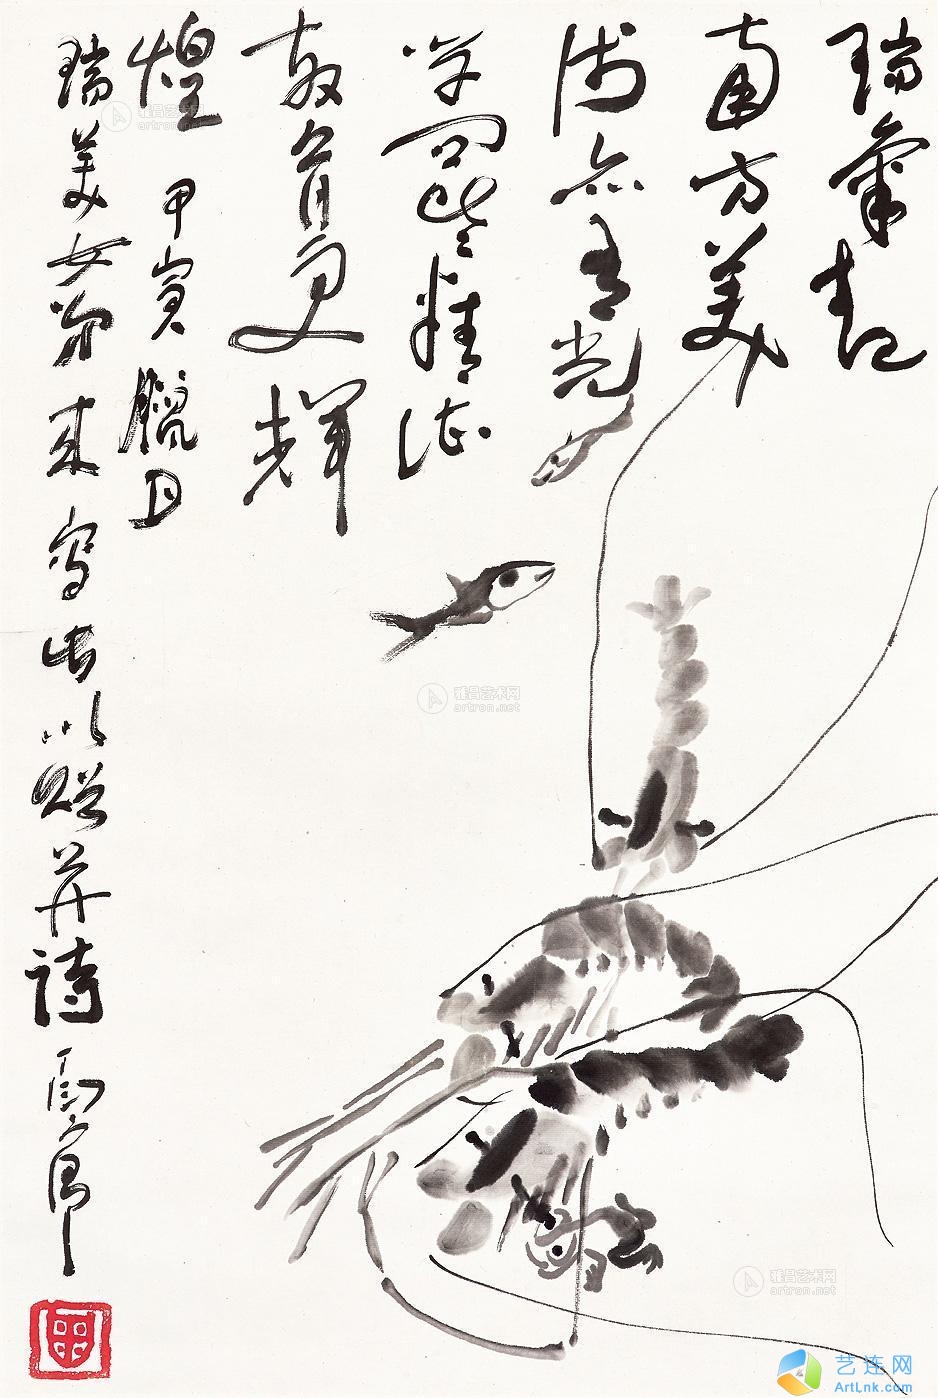 瑞氣起
南方美
術亦光
学問精
教育更輝
煌 甲寅臘月
瑞美女弟来写出以赠并詩
雅昌艺术网
artron.net
雅昌艺术网
artron.net
雅昌艺术网
artron.net
艺连网
ArtLnk.com